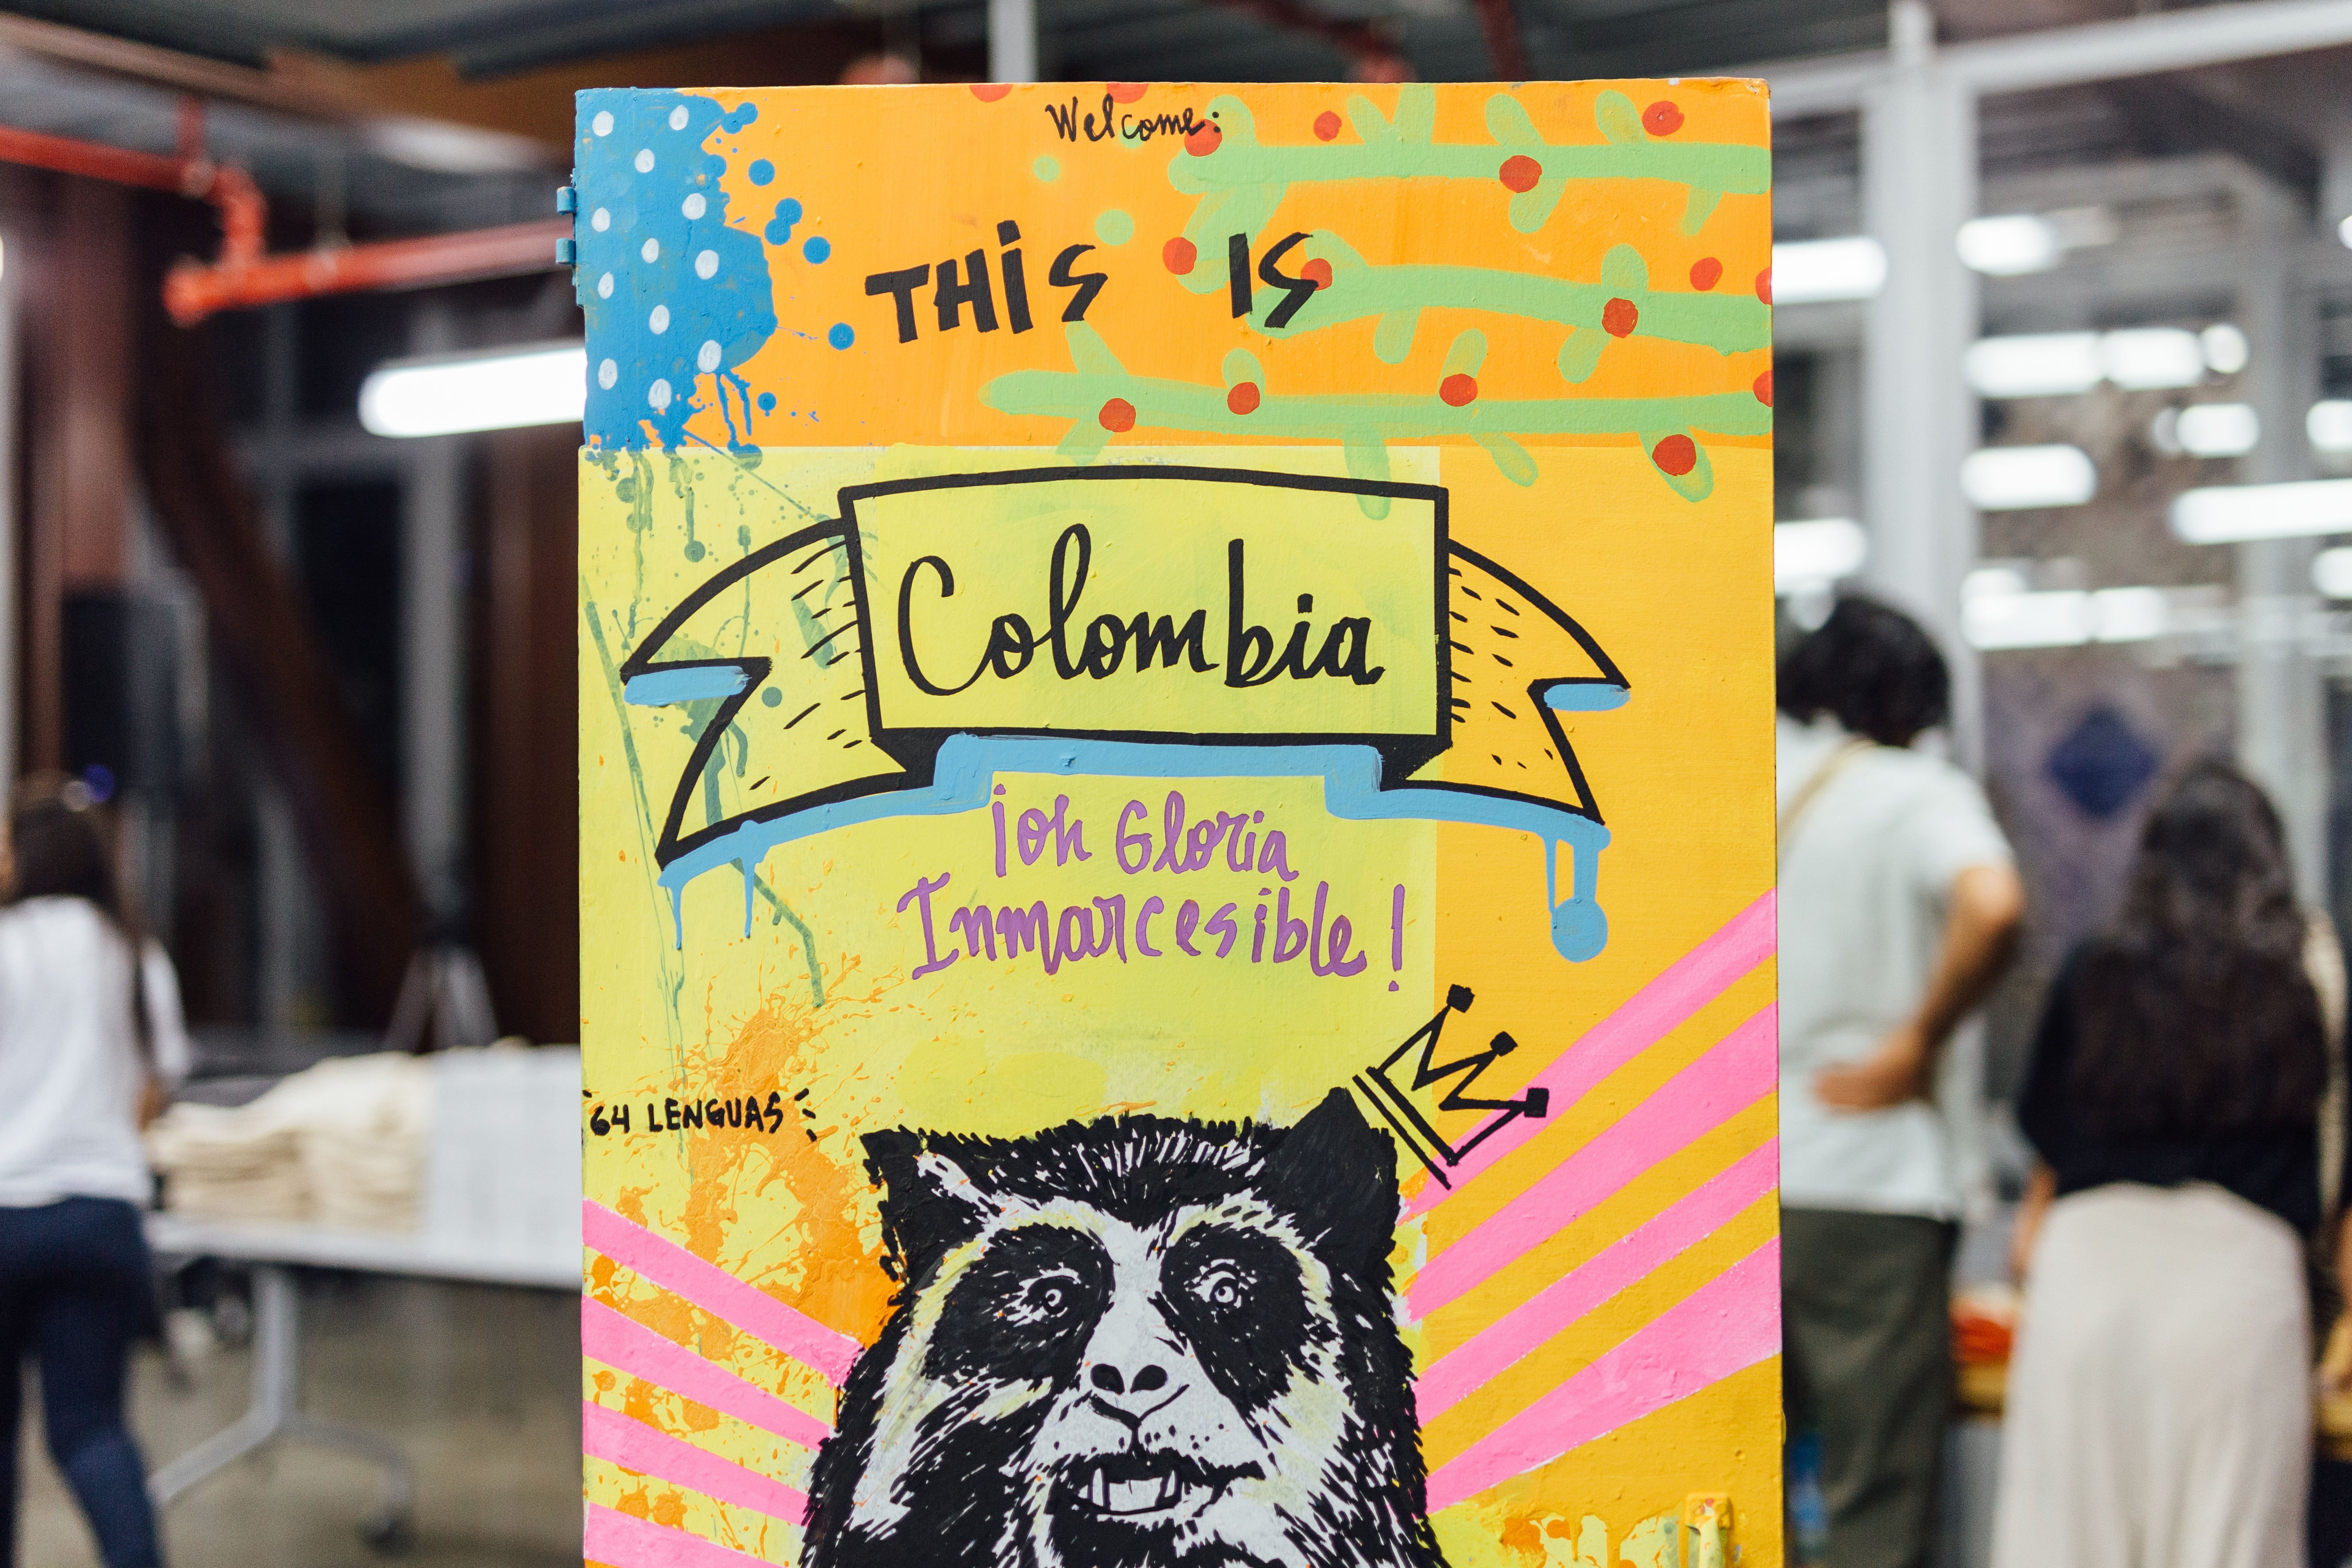 Welcome:
THIS IS
Colombia
¡oh Gloria
Inmarcesible!
64 LENGUAS